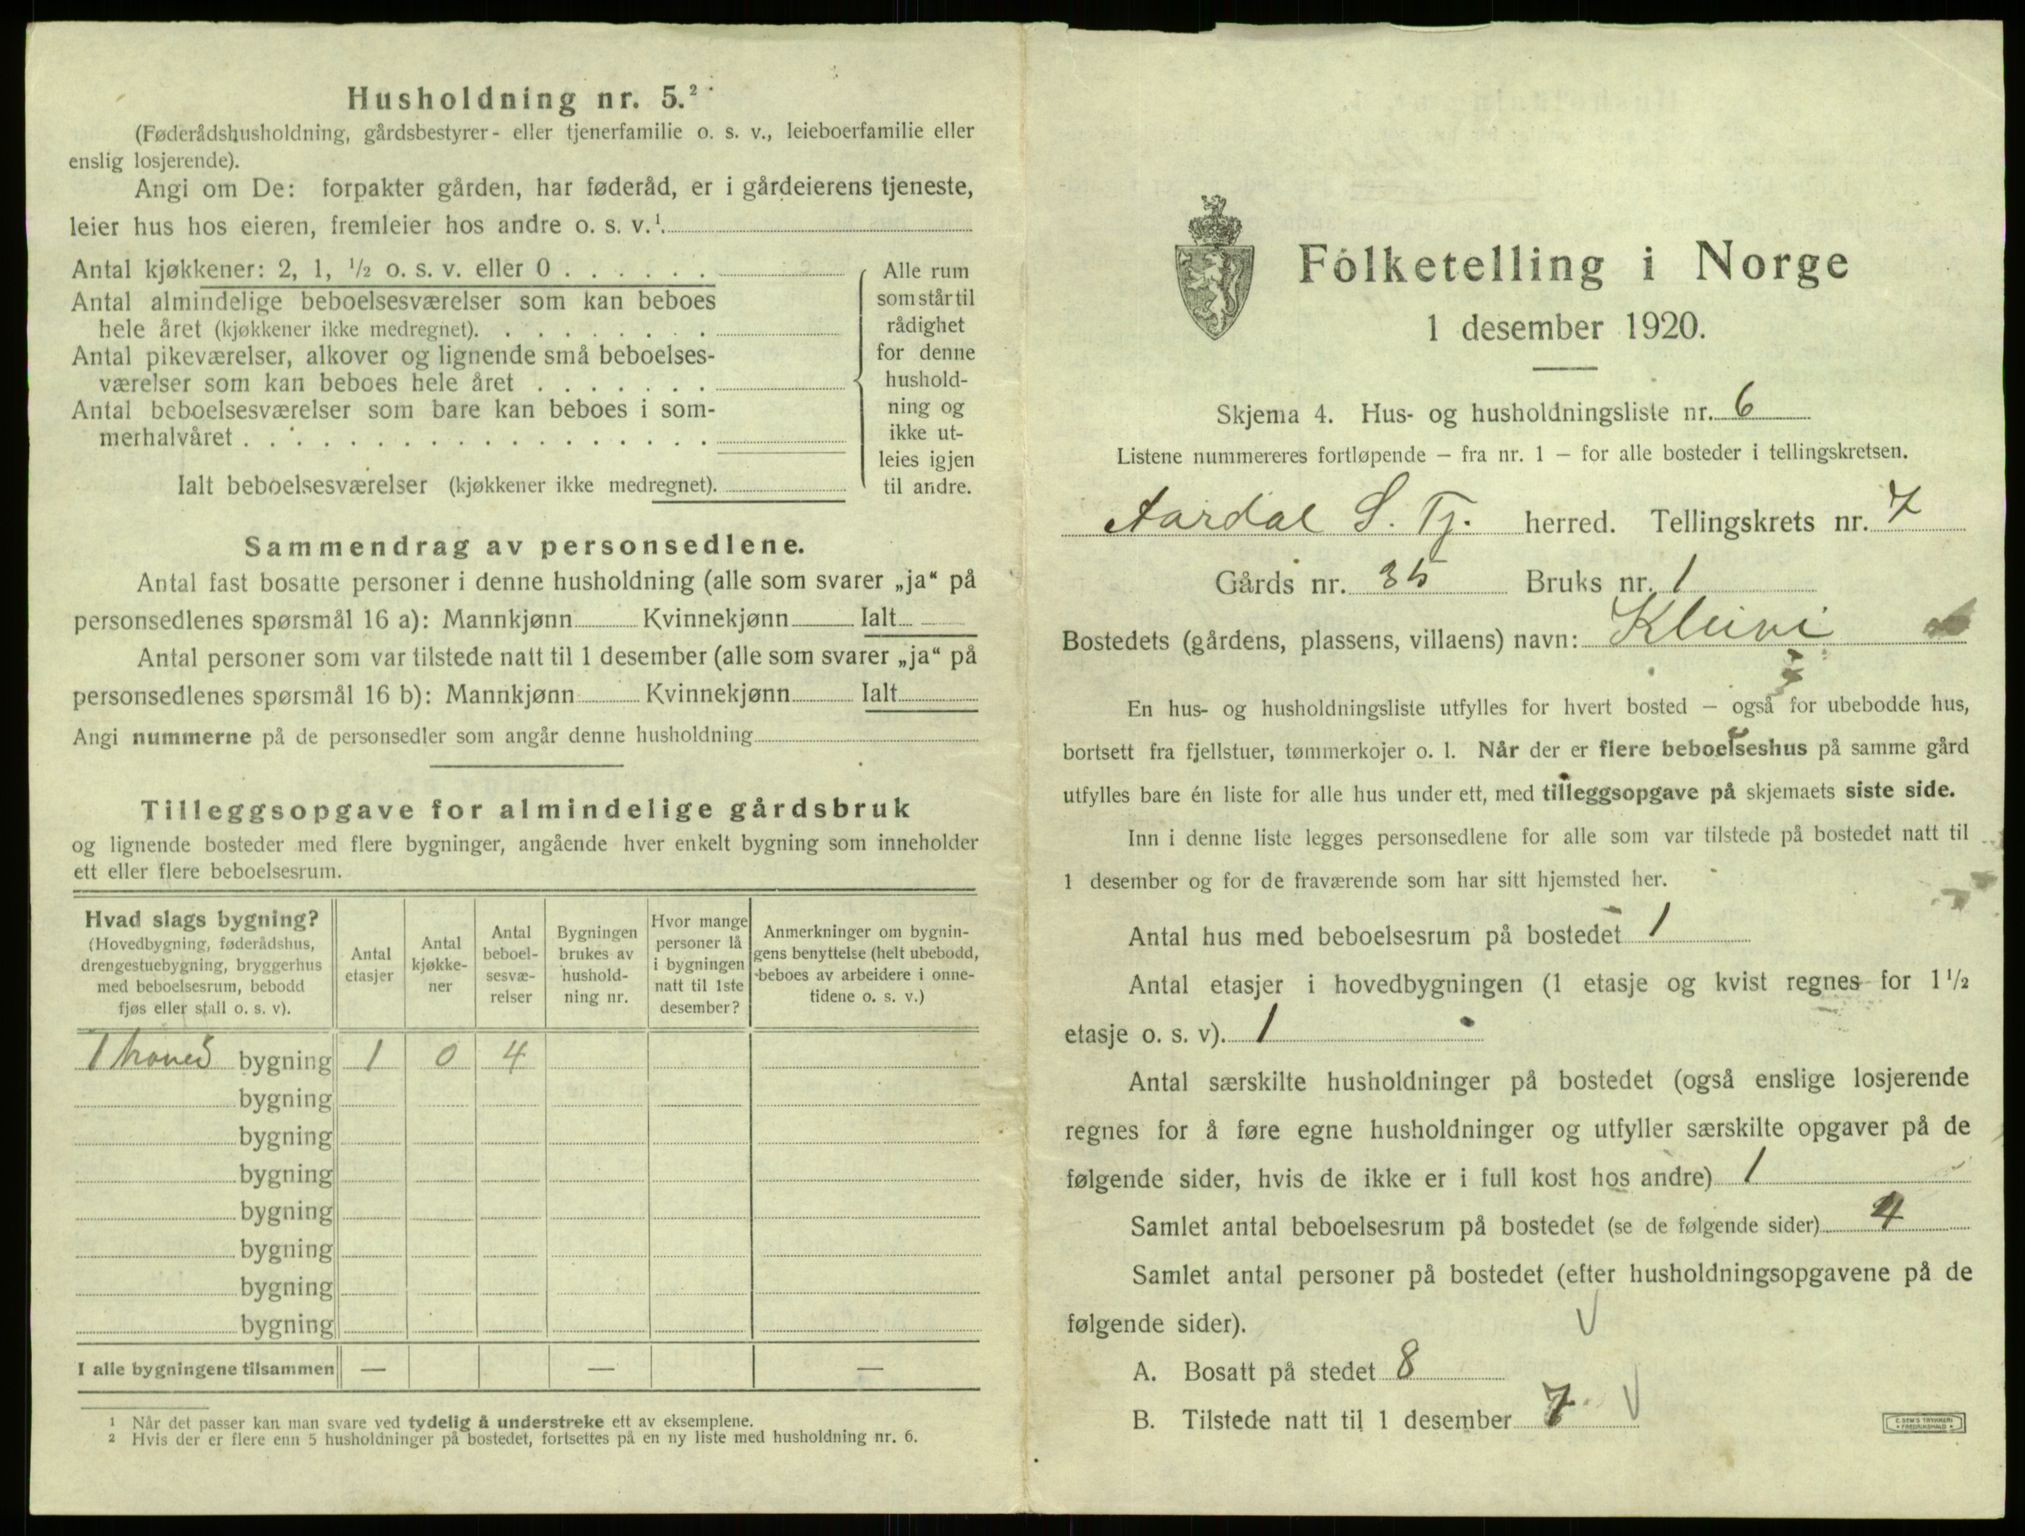 Husholdning nr. 5.²
(Føderådshusholdning, gårdsbestyrer- eller tjenerfamilie o. s. v., leieboerfamilie eller
enslig losjerende).
Angi om De: forpakter gården, har føderåd, er i gårdeierens tjeneste,
leier hus hos eieren, fremleier hos andre o. s. v.¹
Antal kjøkkener: 2, 1, ½ o. s. v. eller 0
Antal almindelige beboelsesværelser som kan beboes
hele året (kjøkkener ikke medregnet).
Antal pikeværelser, alkover og lignende små beboelses-
værelser som kan beboes hele året
Antal beboelsesværelser som bare kan beboes i som-
merhalvåret
Ialt beboelsesværelser (kjøkkener ikke medregnet).
Alle rum
som står til
rådighet
for denne
hushold-
ning og
ikke ut-
leies igjen
til andre.
Sammendrag av personsedlene.
Antal fast bosatte personer i denne husholdning (alle som svarer „ja“ på
personsedlenes spørsmål 16 a): Mannkjønn Kvinnekjønn Ialt
Antal personer som var tilstede natt til 1 desember (alle som svarer „ja“ på
personsedlenes spørsmål 16 b): Mannkjønn Kvinnekjønn Ialt
Angi nummerne på de personsedler som angår denne husholdning
Tilleggsopgave for almindelige gårdsbruk
og lignende bosteder med flere bygninger, angående hver enkelt bygning som inneholder
ett eller flere beboelsesrum.
Hvad slags bygning?
(Hovedbygning, føderådshus,
drengestuebygning, bryggerhus
med beboelsesrum, bebodd
fjøs eller stall o. s. v).
Antal
etasjer
Antal
kjøkke-
ner
Antal
beboel-
sesvæ-
relser
Bygningen
brukes av
hushold-
ning nr.
Hvor mange
personer lå
i bygningen
natt til 1ste
desember?
Anmerkninger om bygnin-
gens benyttelse (helt ubebodd,
beboes av arbeidere i onne-
tidene o. s. v.)
1 hoved bygning 1 0 4
bygning
bygning
bygning
bygning
bygning
bygning
bygning
I alle bygningene tilsammen — — —
¹ Når det passer kan man svare ved tydelig å understreke ett av eksemplene.
² Hvis der er flere enn 5 husholdninger på bostedet, fortsettes på en ny liste med husholdning nr. 6.
Folketelling i Norge
1 desember 1920.
Skjema 4. Hus- og husholdningsliste nr. 6
Listene nummereres fortløpende – fra nr. 1 – for alle bosteder i tellingskretsen.
Aardal S. Fj. herred. Tellingskrets nr. 7
Gårds nr. 35 Bruks nr. 1
Bostedets (gårdens, plassens, villaens) navn: Kleivi
En hus- og husholdningsliste utfylles for hvert bosted – også for ubebodde hus,
bortsett fra fjellstuer, tømmerkojer o. l. Når der er flere beboelseshus på samme gård
utfylles bare én liste for alle hus under ett, med tilleggsopgave på skjemaets siste side.
Inn i denne liste legges personsedlene for alle som var tilstede på bostedet natt til
1 desember og for de fraværende som har sitt hjemsted her.
Antal hus med beboelsesrum på bostedet 1
Antal etasjer i hovedbygningen (1 etasje og kvist regnes for 1 ½
etasje o. s. v). 1
Antal særskilte husholdninger på bostedet (også enslige losjerende
regnes for å føre egne husholdninger og utfyller særskilte opgaver på de
følgende sider, hvis de ikke er i full kost hos andre) 1
Samlet antal beboelsesrum på bostedet (se de følgende sider) 4
Samlet antal personer på bostedet (efter husholdningsopgavene på de
følgende sider).
A. Bosatt på stedet 8
B. Tilstede natt til 1 desember 7
E. SEM'S TRYKKERI
FREDRIKSHALD